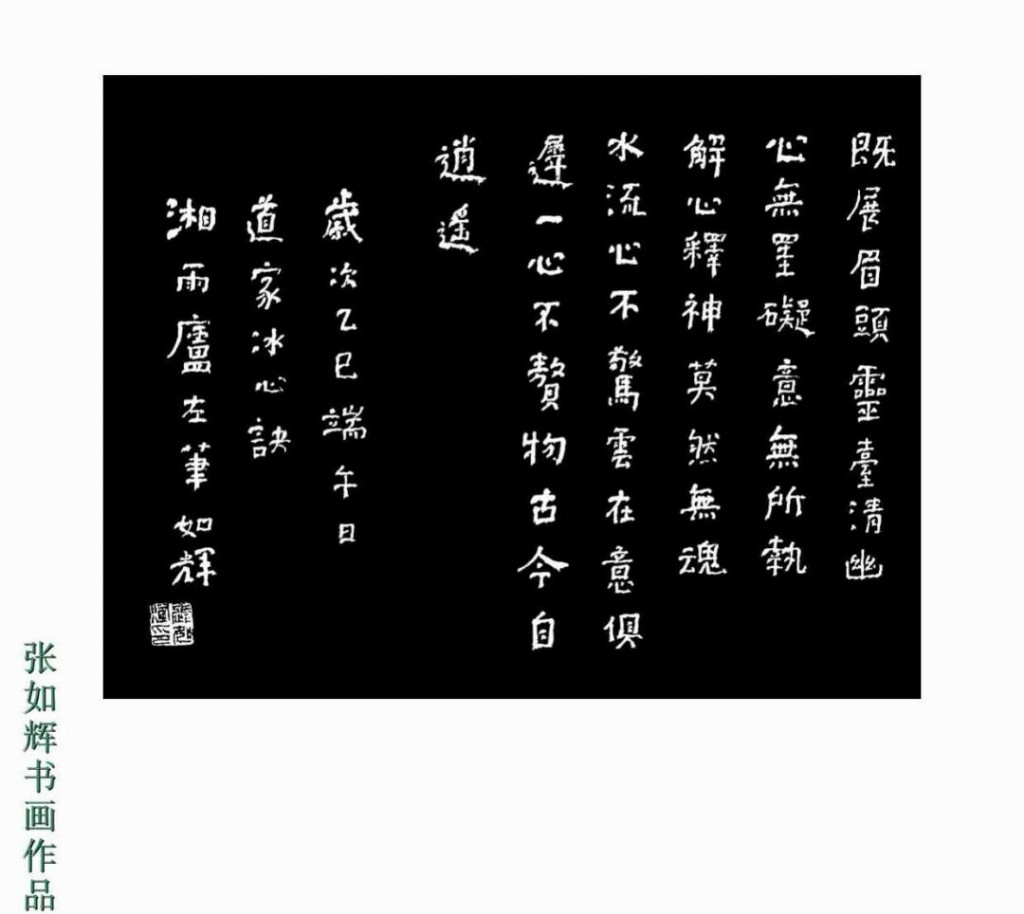 既展眉頭靈臺清幽
心無罣礙意無所執
解心釋神莫然無魂
水流心不驚雲在意俱
遟一心不贅物古今自
逍遙
歲次乙巳端午日
道家冰心訣
湘雨廬左筆如輝
张如辉书画作品